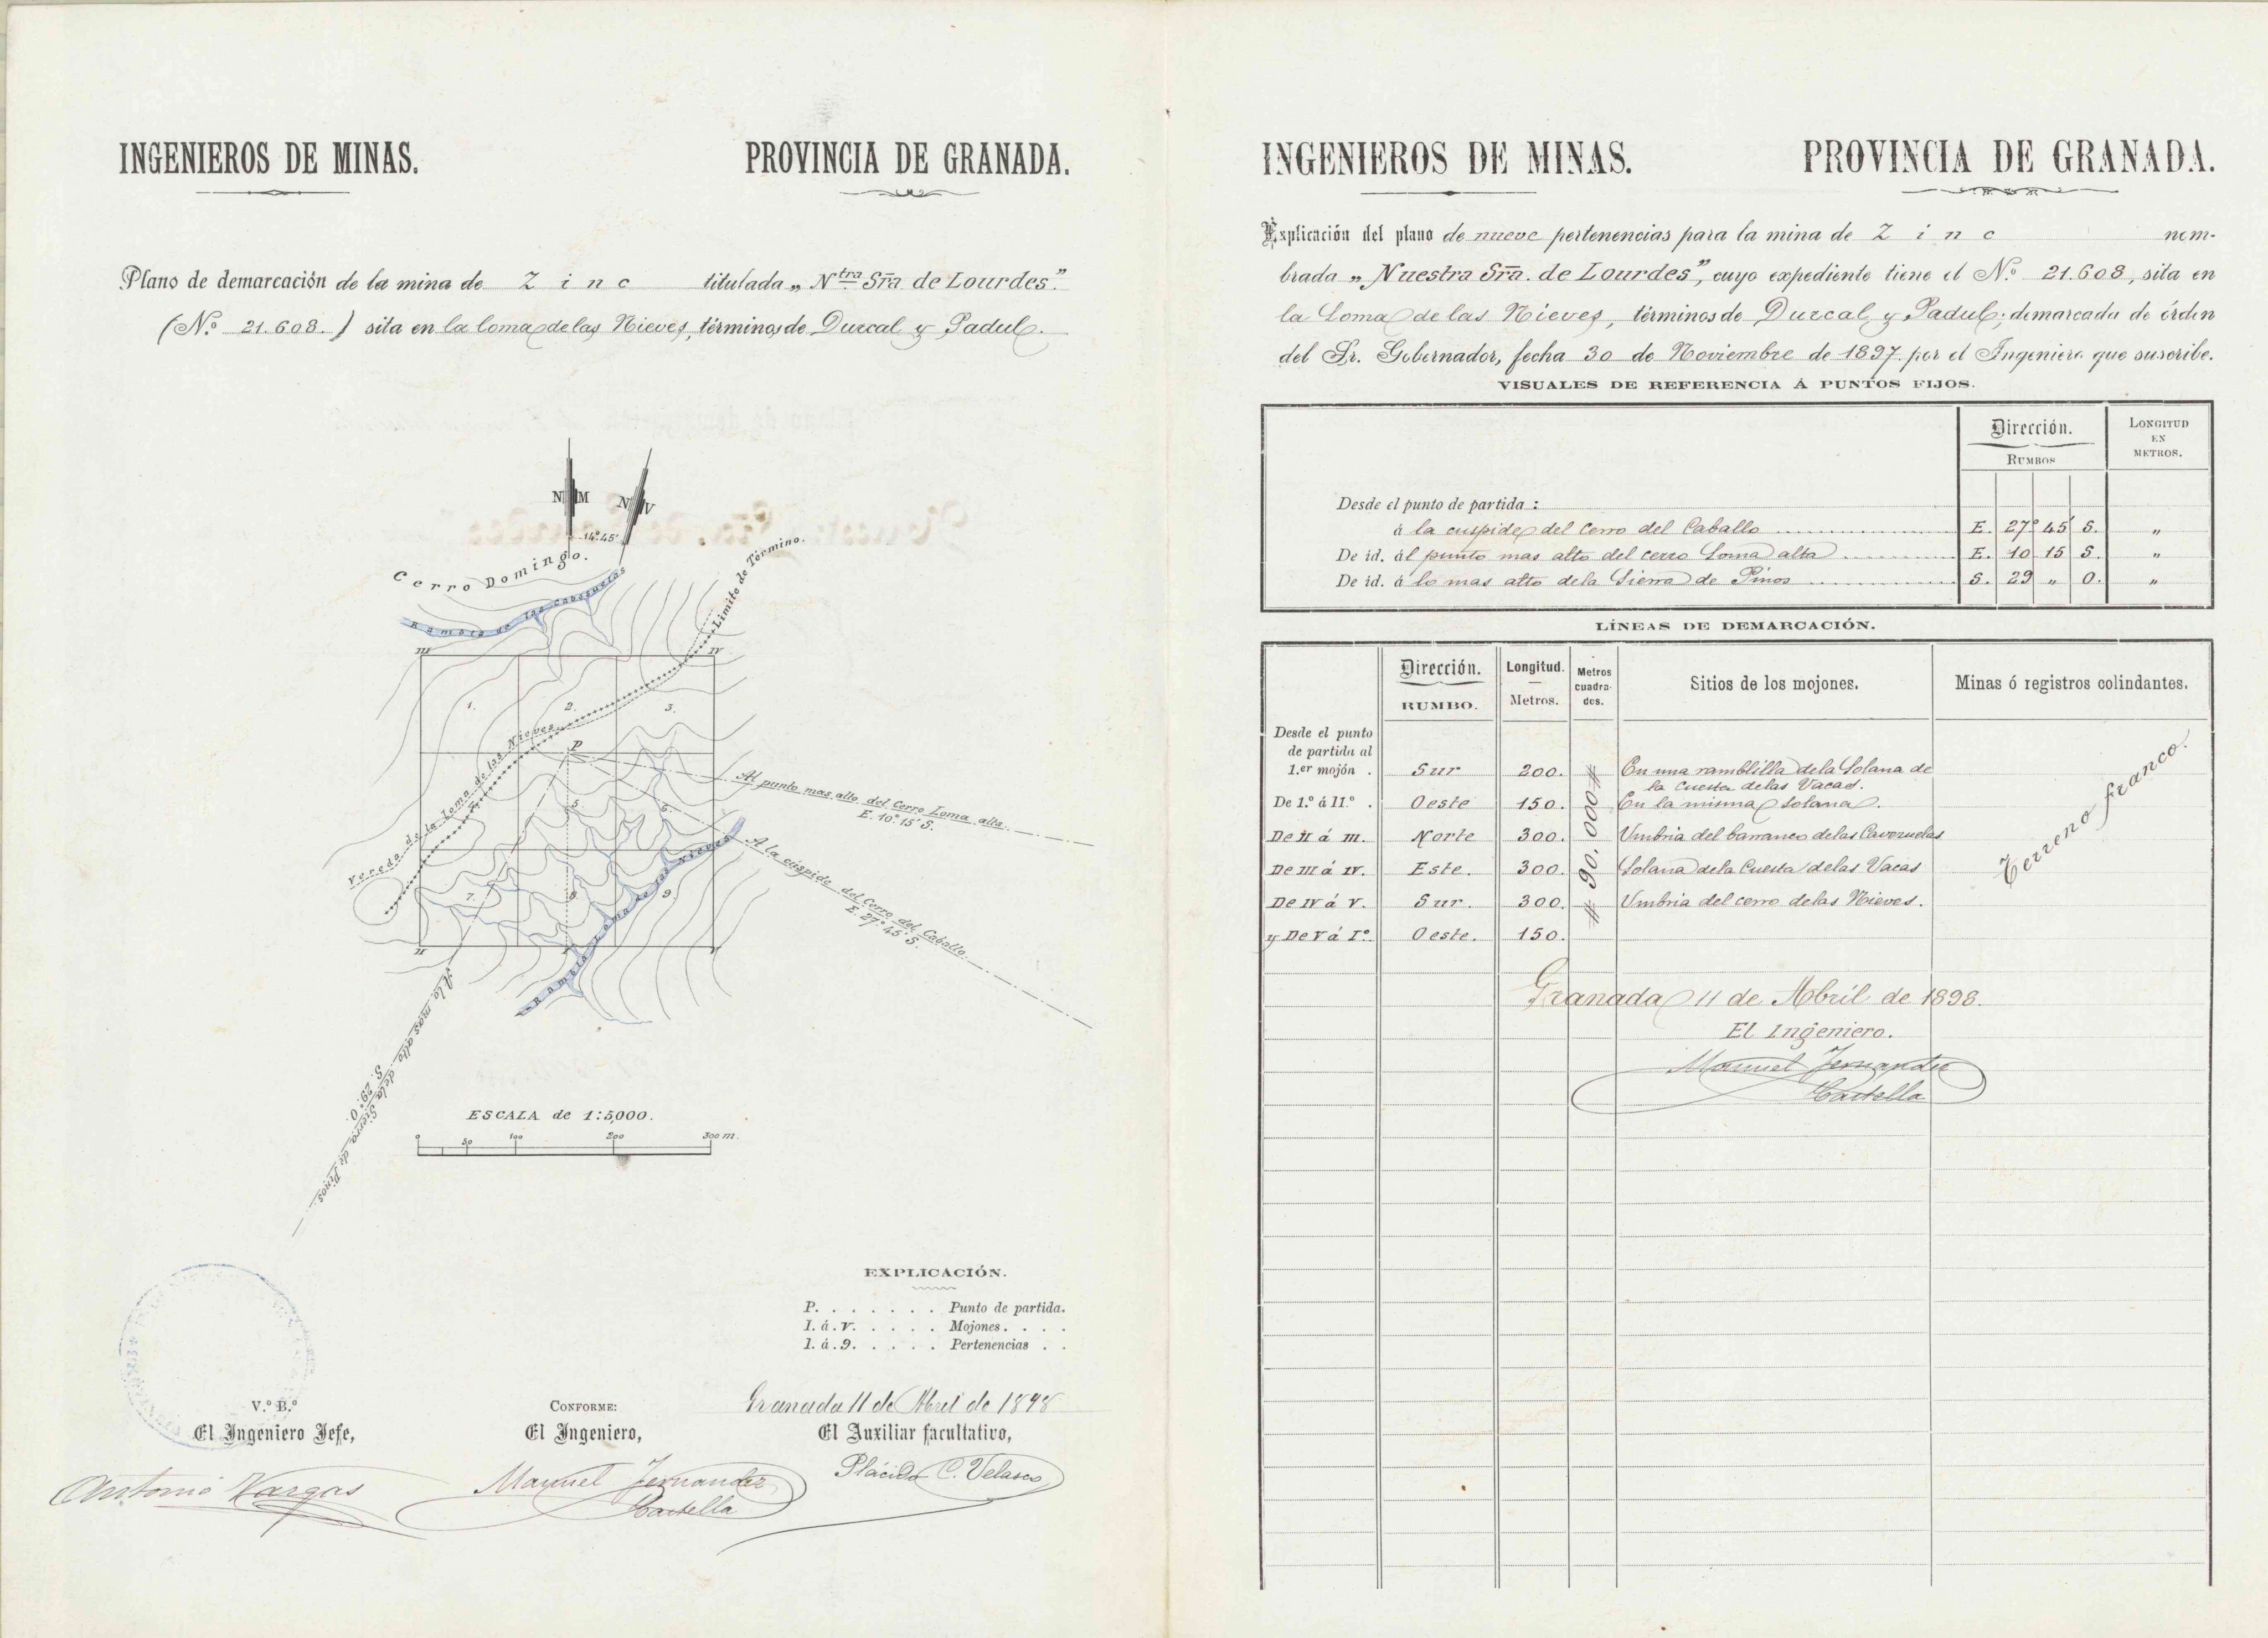 INGENIEROS DE MINAS. PROVINCIA DE GRANADA.
Plano de demarcación de la mina de Zinc titulada „Ntra Sra de Lourdes."
(N.º 21.608.) sita en la loma de las Nieves, términos de Durcal y Padul.
N M
N V
14º45'
Cerro Domingo.
Rambla de las Cabesuelas
Limite de Término.
III
IV
1.
2.
3.
Vereda de la Loma de las Nieves
P
4.
5
6.
Al punto mas alto del Cerro Loma alta.
E. 10º 15' S.
A la cúspide del Cerro del Caballo
E. 27º 45' S.
7.
8
9.
Rambla Loma de las Nieves
II
I
V
A lo mas alto de la Sierra de Pinos.
S. 29º O.
ESCALA de 1:5,000.
0 50 100 200 300 m.
EXPLICACIÓN.
P. . . . . . . Punto de partida.
I. á . V. . . . . Mojones. . . .
1. á . 9. . . . . Pertenencias . .
Granada 11 de Abril de 1898
V.º B.º
El Ingeniero Jefe,
CONFORME:
El Ingeniero,
El Auxiliar facultativo,
Antonio Vargas
Manuel Fernandez
Castella
Plácido C. Velasco
INGENIEROS DE MINAS. PROVINCIA DE GRANADA.
Explicación del plano de nueve pertenencias para la mina de Zinc nom-
brada „Nuestra Sra. de Lourdes", cuyo expediente tiene el N.º 21.608, sita en
la Loma de las Nieves, términos de Durcal y Padul; demarcada de órden
del Sr. Gobernador, fecha 30 de Noviembre de 1897 por el Ingeniero que suscribe.
VISUALES DE REFERENCIA Á PUNTOS FIJOS.
Dirección.
RUMBOS
LONGITUD
EN
METROS.
Desde el punto de partida :
á la cuspide del Cerro del Caballo E. 27º 45' S. „
De id. ál punto mas alto del cerro Loma alta E. 10 15 S. „
De id. á lo mas alto dela Sierra de Pinos S. 29 „ O. „
LÍNEAS DE DEMARCACIÓN.
Dirección.
RUMBO.
Longitud.
Metros.
Metros
cuadra-
dos.
Sitios de los mojones.
Minas ó registros colindantes.
Desde el punto
de partida al
1.er mojón . Sur 200. En una ramblilla dela Solana de
la Cuesta delas Vacas.
De 1.º á II.º . Oeste 150. En la misma Solana.
De II á III. Norte 300. Umbria del barranco delas Cavezuelas
De III á IV. Este. 300. Solana dela Cuesta delas Vacas
De IV á V. Sur. 300. Umbria del cerro delas Nieves.
y De V á Iº. Oeste. 150.
# 90.000 #
Terreno franco.
Granada 11 de Abril de 1898.
El Ingeniero.
Manuel Fernandez
Castella